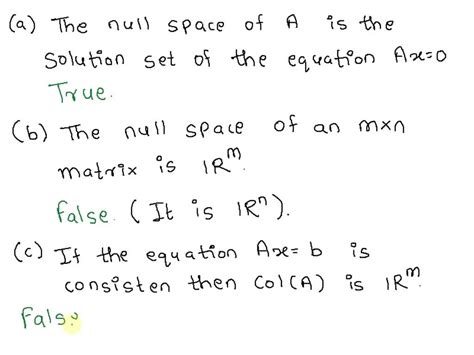 (a) The null space of A is the
solution set of the equation Ax=0
True.
(b) The null space of an mxn
matrix is ℝᵐ.
false. (It is ℝⁿ).
(c) If the equation Ax=b is
consisten then Col(A) is ℝᵐ.
Fals